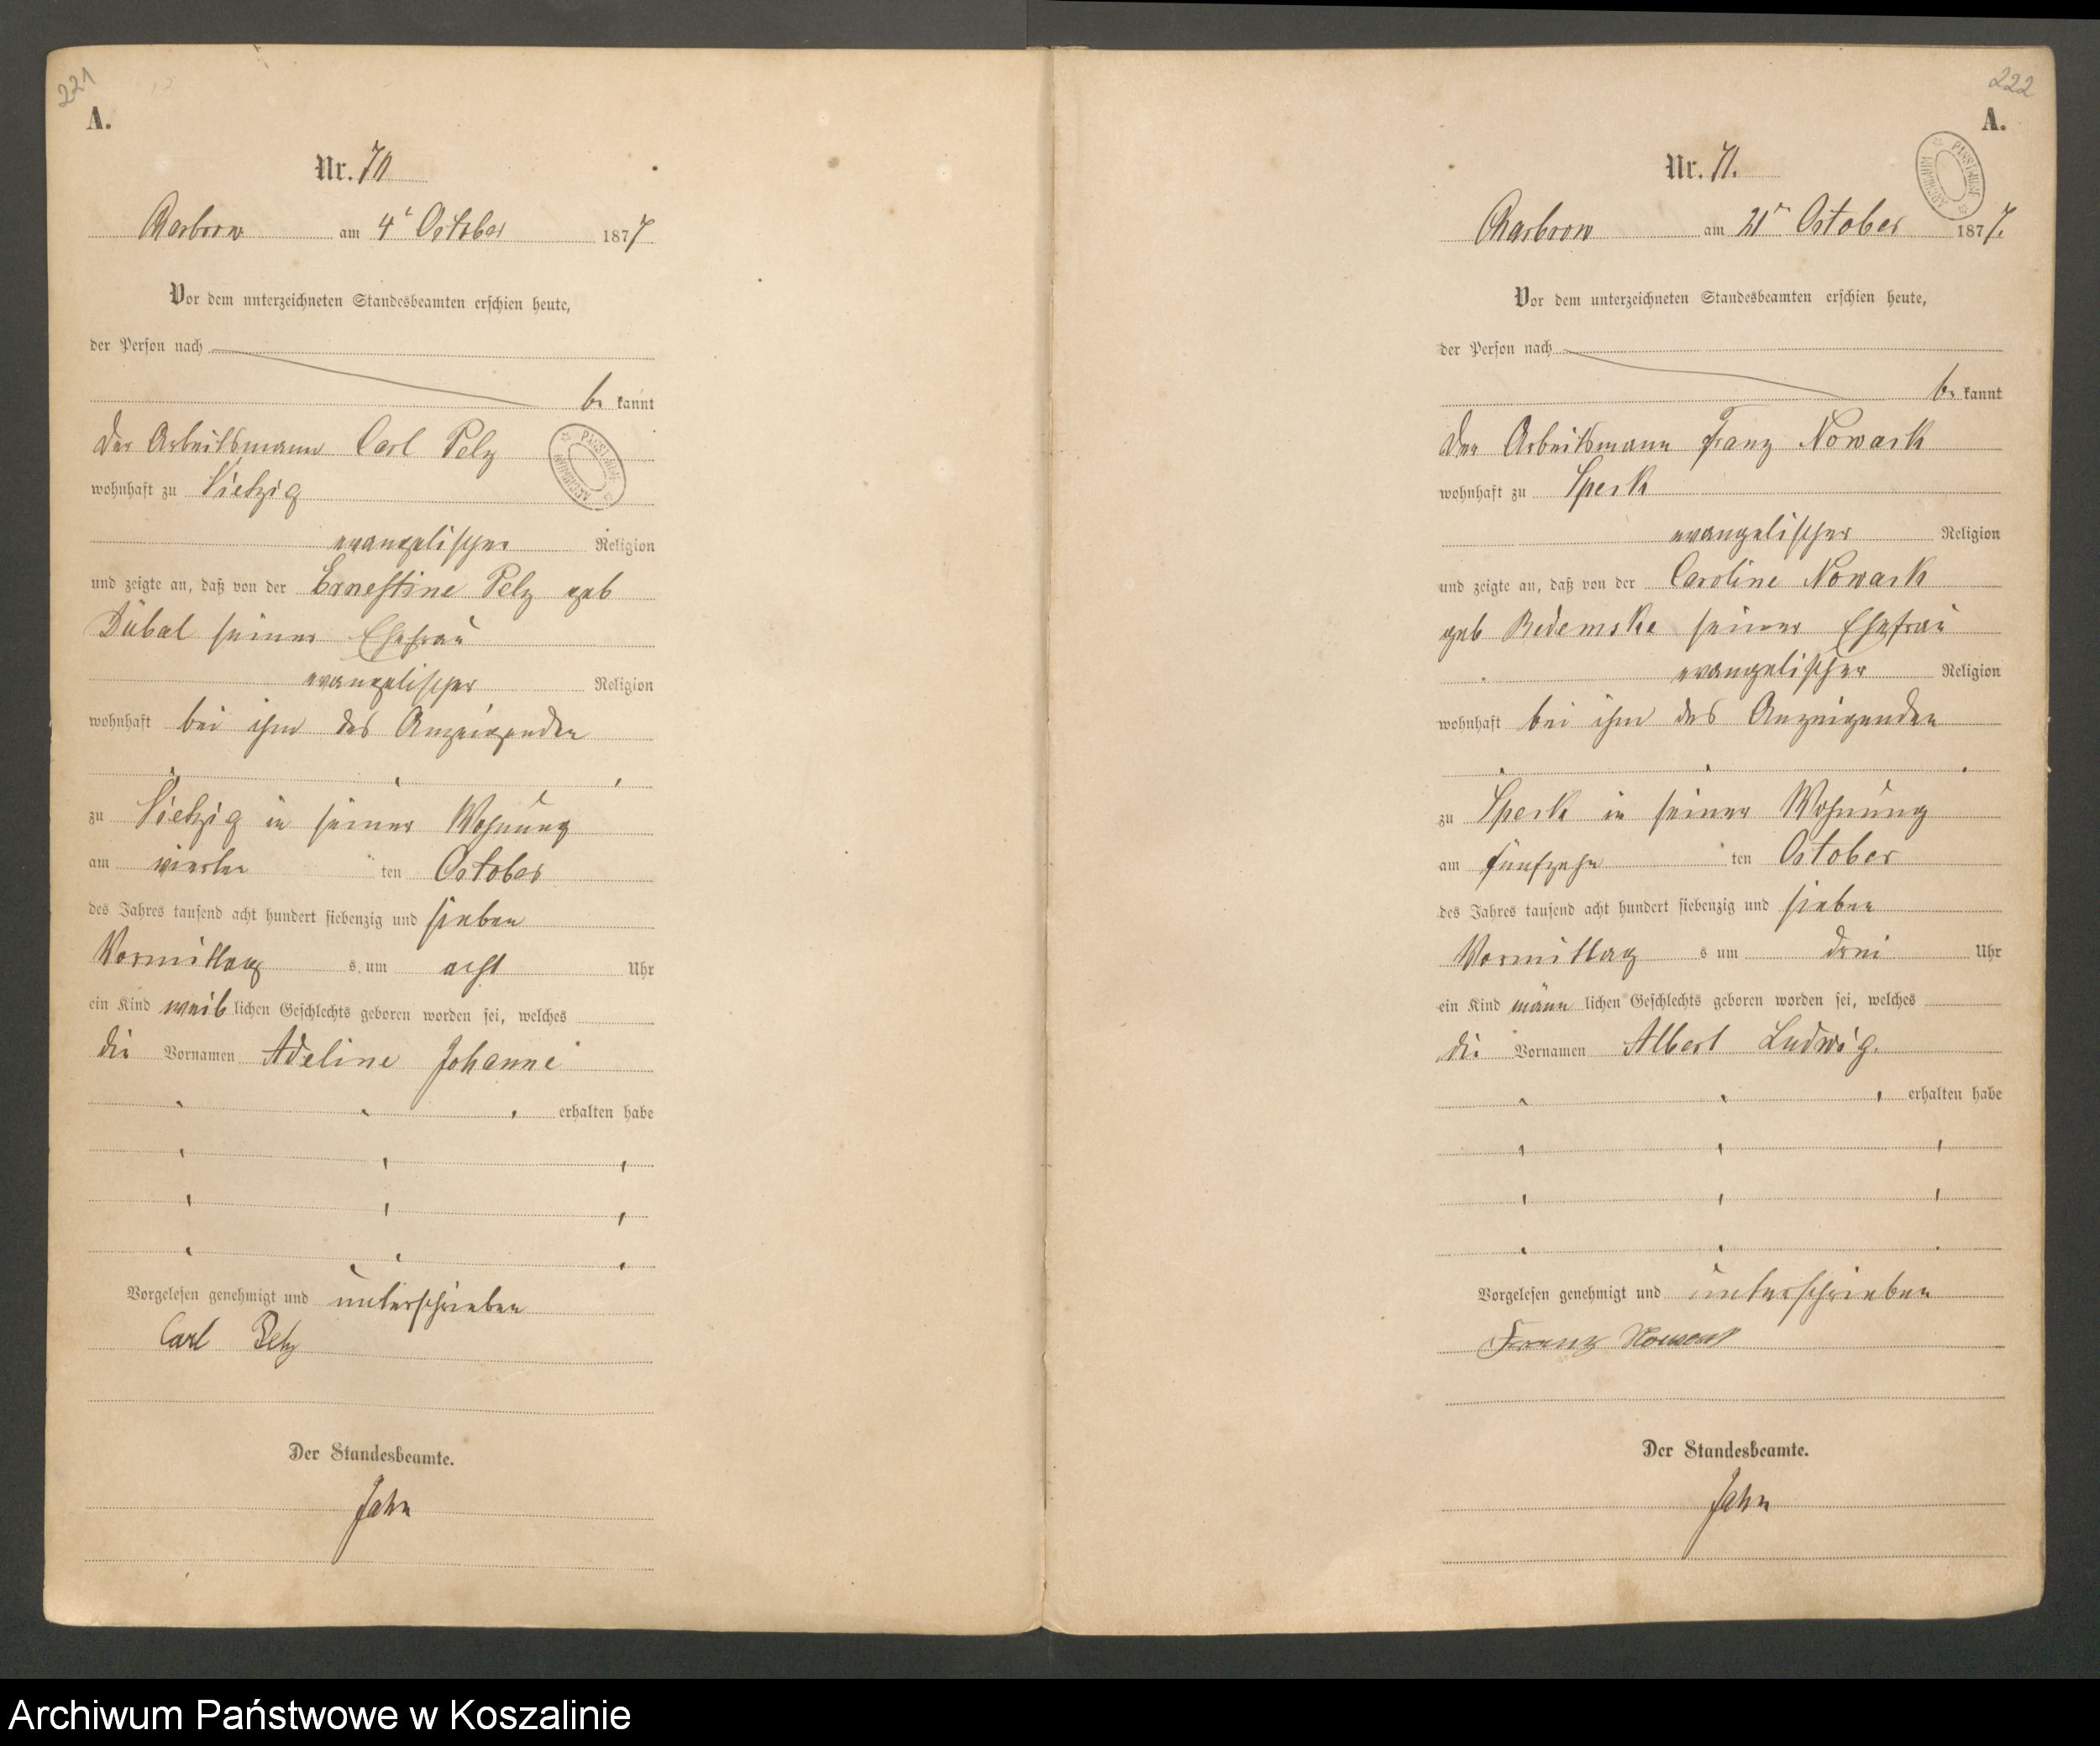 221
A.
Nr. 70
Charbrow am 4t October 1877
Vor dem unterzeichneten Standesbeamten erschien heute,
der Person nach
be kannt
Der Arbeitsmann Carl Pelz
wohnhaft zu Vietzig
evangelischer Religion
und zeigte an, daß von der Ernestine Pelz geb
Dübal seiner Ehefrau
evangelischer Religion
wohnhaft bei ihm des Anzeigenden
zu Vietzig in seiner Wohnung
am vierten ten October
des Jahres tausend acht hundert siebenzig und sieben
Vormittag s um acht Uhr
ein Kind weib lichen Geschlechts geboren worden sei, welches
die Vornamen Adeline Johanne
erhalten habe
Vorgelesen genehmigt und unterschrieben
Carl Pelz
Der Standesbeamte.
Jahn
222
A.
ARCHIWUM PAŃSTWOWE
Nr. 71.
Charbrow am 21tn October 1877.
Vor dem unterzeichneten Standesbeamten erschien heute,
der Person nach
be kannt
Der Arbeitsmann Franz Nowack
wohnhaft zu Speck
evangelischer Religion
und zeigte an, daß von der Caroline Nowack
geb Redemske seiner Ehefrau
evangelischer Religion
wohnhaft bei ihm des Anzeigenden
zu Speck in seiner Wohnung
am fünfzehn ten October
des Jahres tausend acht hundert siebenzig und sieben
Vormittag s um drei Uhr
ein Kind männ lichen Geschlechts geboren worden sei, welches
die Vornamen Albert Ludwig.
erhalten habe
Vorgelesen genehmigt und unterschrieben
Franz Nowack
Der Standesbeamte.
Jahn
Archiwum Państwowe w Koszalinie